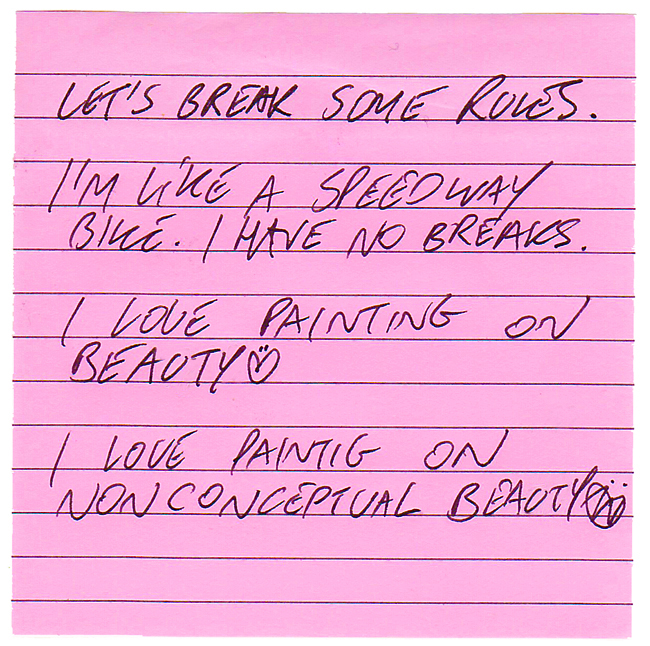 LET'S BREAK SOME RULES.
I'M LIKE A SPEEDWAY
BIKE. I HAVE NO BREAKS.
I LOVE PAINTING ON
BEAUTY
I LOVE PAINTIG ON
NONCONCEPTUAL BEAUTY